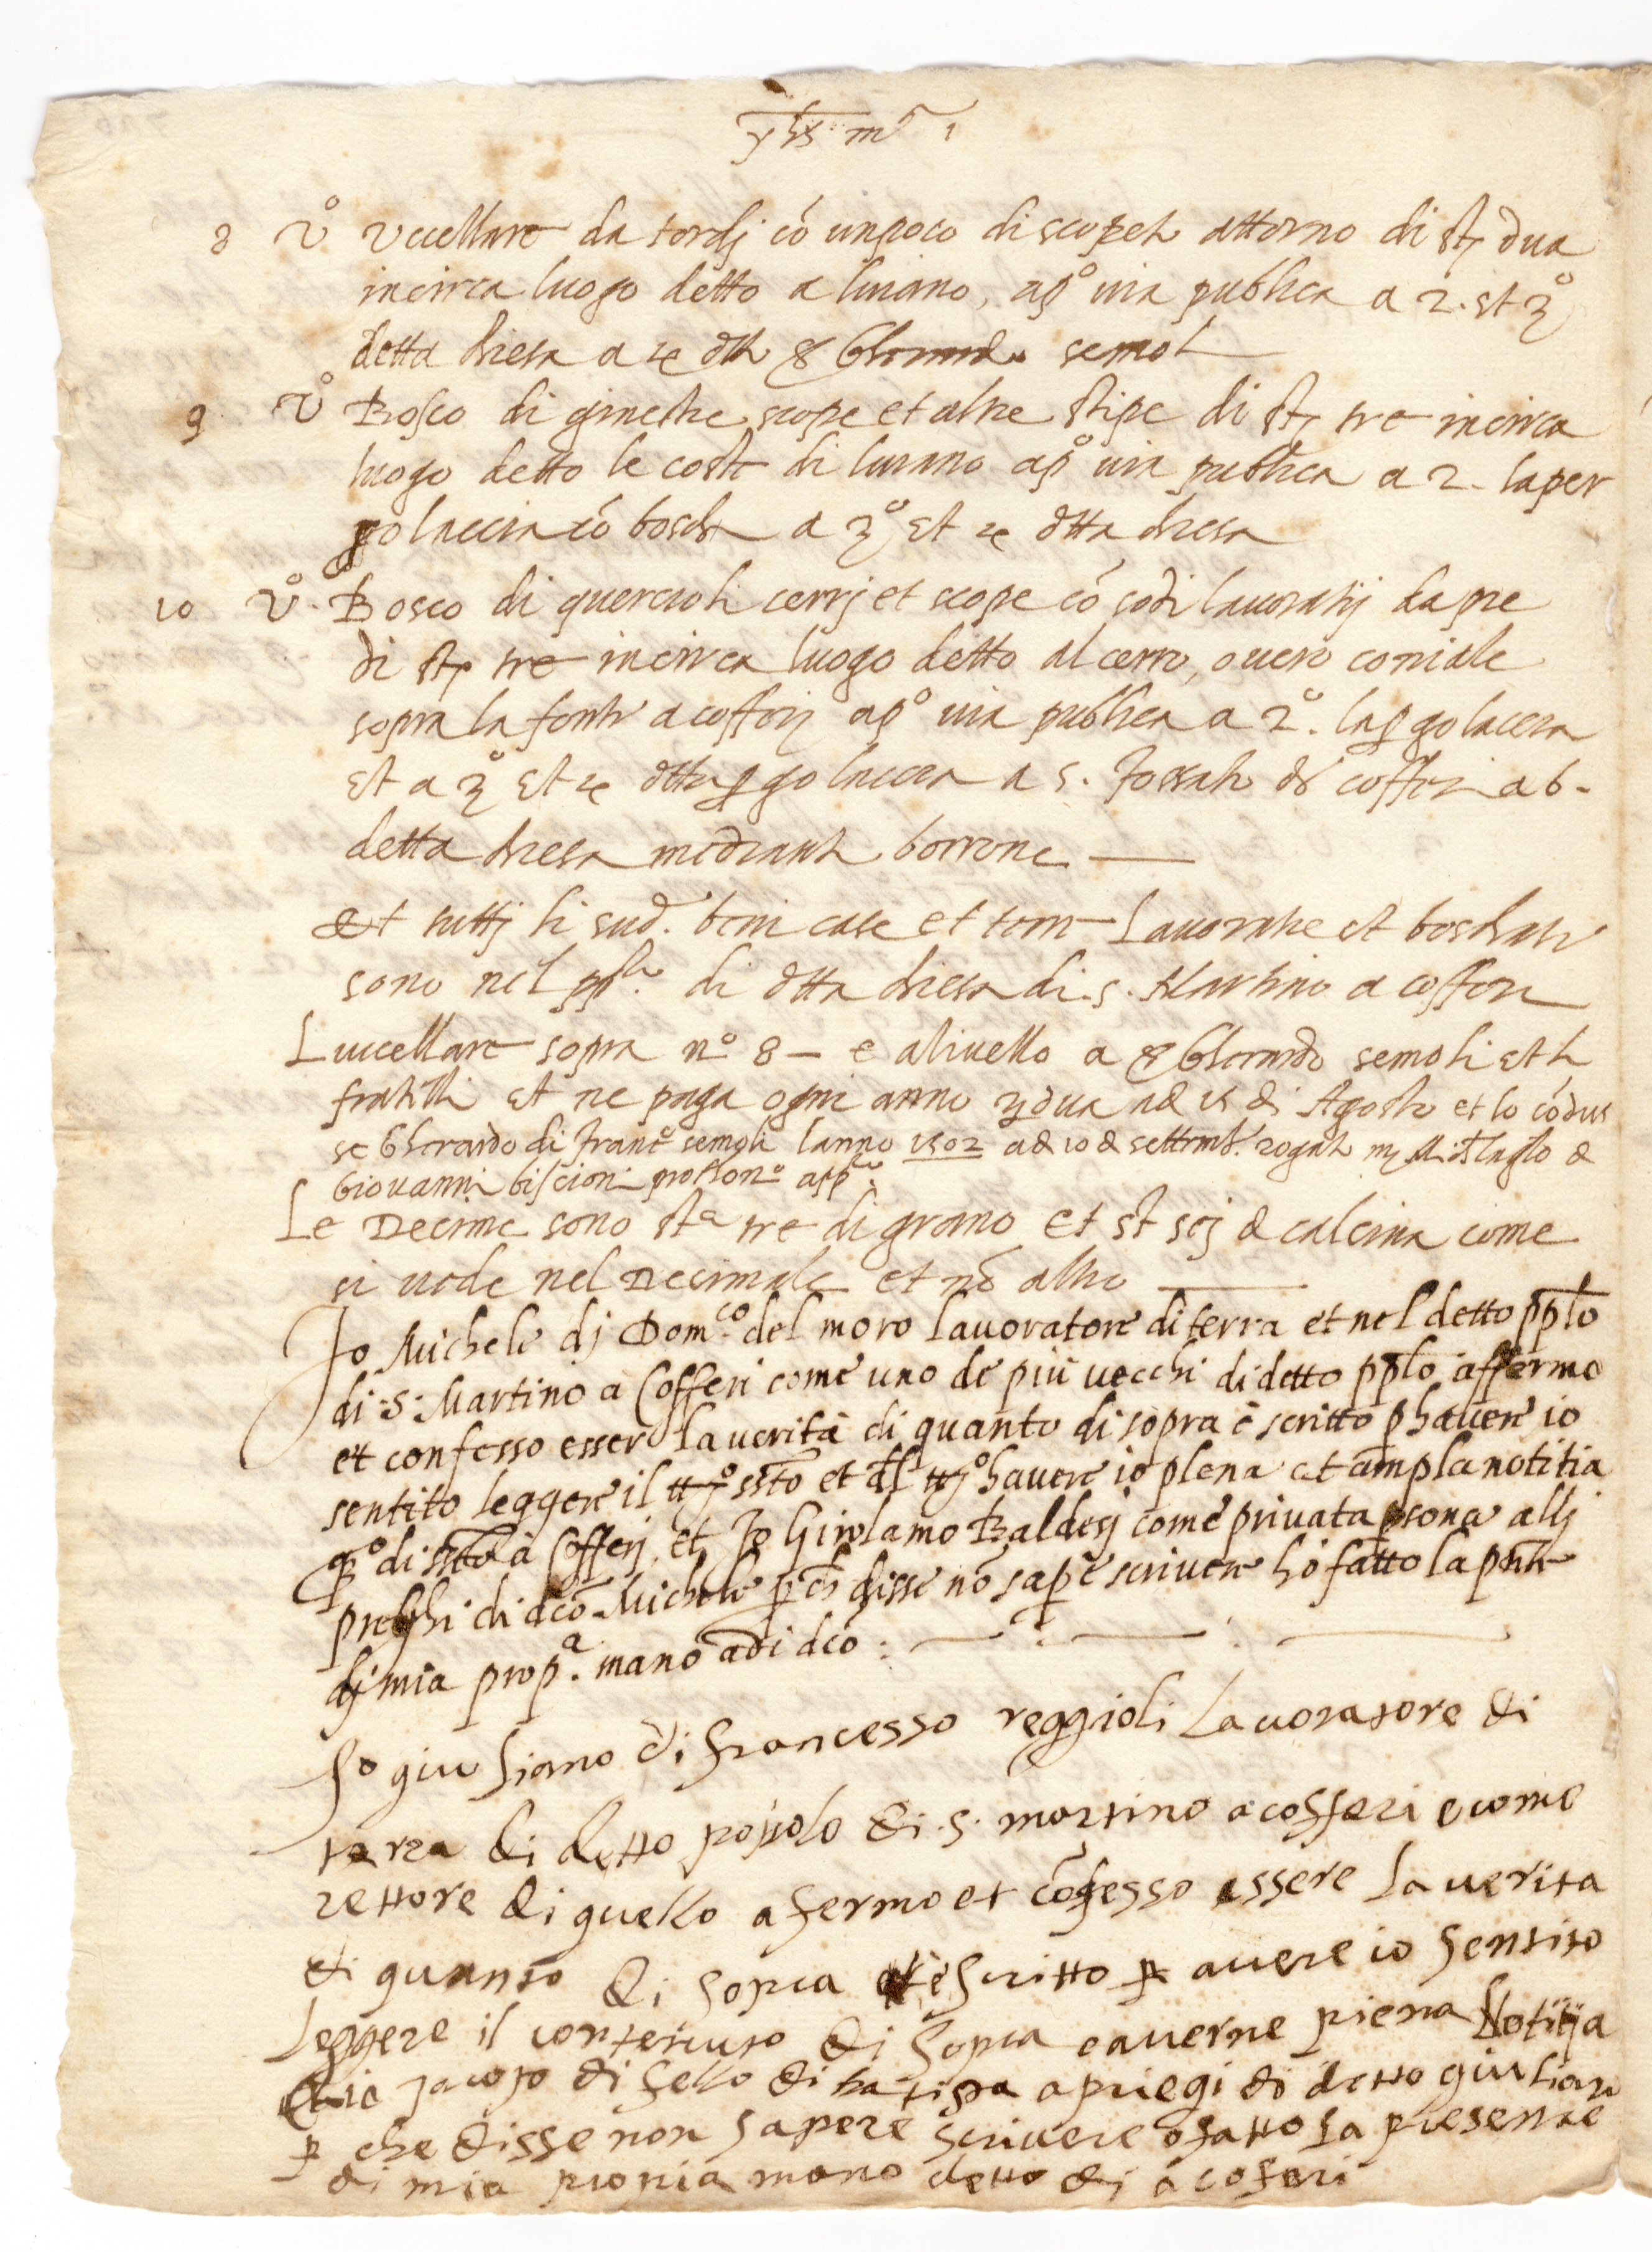 yhs mª
8 vº Vccellare da tordj cō un poco di scopeto attorno di stª dua
incirca luogo detto a luiano, apº uia publica a 2. et 3º
detta chiesa a 4 Gherardo semoli
9 vº Bosco di ginestre scope et altre stipe di stª tre incirca
luogo detto le coste di luiano apº uia publica a 2. la per
golaccia cō boscho a 3º et 4 dtta chiesa
10 vº Bosco di quercioli cerrj et scope cō sodi lauoratij da pre
di stª tre incirca luogo detto al cerro, ouero coniale
sopra la fonte a cofferj apº uia publica a 2º. la pgolaccia
et a 3º et 4 dtta pgolaccia a 5. fossato di cofferi a 6.
detta chiesa mediante borrone
Et tuttj li sud. beni case et terre lauoratie et boschate
sono nel pplo di dtta chiesa di .s. Martino a cofferi
L uccellare sopra nº 8 – e aliuello a Gherardo semoli et li
fratelli et ne paga ogni anno dua ad 15 di Agosto et lo cōdus
se Gherardo di Francº semoli lanno 1502 ad 10 d settemb. rogato
Giouanni biscioni prothonº app.
Le Decime sono stª tre di grano et st sej d calcina come
si uede nel Decimale et nō altro
Io Michele dj Dom.co del moro lauoratore di terra et nel detto pplo
di .S. Martino a Cofferi come uno de piu uecchi di detto pplo affermo
et confesso esser la uerità di quanto di sopra è scritto p hauere io
sentito leggere il ttº sstō et dl ttº hauere io plena et ampla notitia
qº di sstō à Cofferj, et Io Girolamo Baldesj come priuata psona allj
preghi di dcō Michele p ch disse nō sape scriuere hò fatto la pnte
dj mia propª. mano adi dcō :
Io giuliano di francesso reggioli Lauoratore di
tarra di detto popolo di .s. martino a cofferi e come
rettore di quello afermo et cōfesso essere la uerita
di quanto di sopra è scritto p auere io sentito
leggere il contenuto di sopra e auerne piena Notitja
E io jacopo di fello di batista a priegi di detto giulian
p che disse non sapere scriuere o fatto la presente
di mia propia mano detto di a coferi